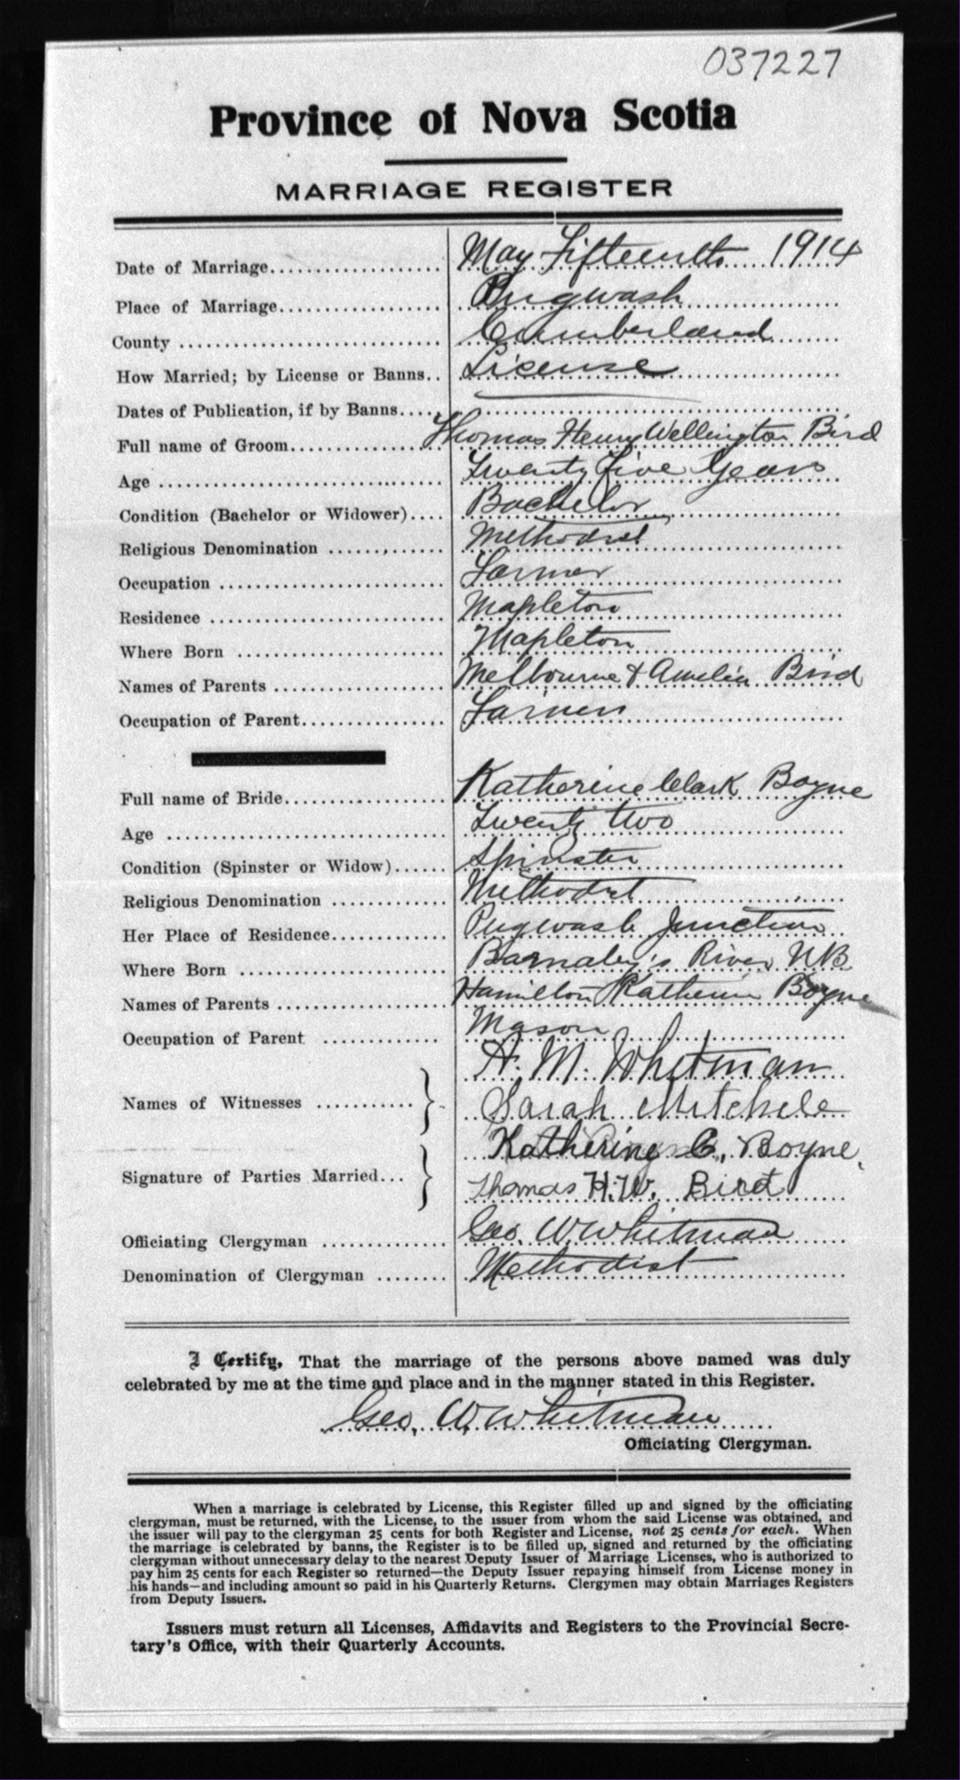 037227
Province of Nova Scotia
MARRIAGE REGISTER
Date of Marriage.................... May Fifteenth 1914
Place of Marriage................... Pugwash
County ............................. Cumberland
How Married; by License or Banns.. License
Dates of Publication, if by Banns....
Full name of Groom................. Thomas Henry Wellington Bird
Age ................................ Twenty Five Years
Condition (Bachelor or Widower).... Bachelor
Religious Denomination ............. Methodist
Occupation ......................... Farmer
Residence .......................... Mapleton
Where Born ......................... Mapleton
Names of Parents ................... Melbourne & Amelia Bird
Occupation of Parent................ Farmer
Full name of Bride.................. Katherine Clark Boyne
Age ................................ Twenty two
Condition (Spinster or Widow)...... Spinster
Religious Denomination ............. Methodist
Her Place of Residence............. Pugwash Junction
Where Born ......................... Barnaby's River NB
Names of Parents ................... Hamilton Katherine Boyne
Occupation of Parent ............. Mason
A. M. Whitman
Names of Witnesses ...........
Sarah Mitchele
Katherine C. Boyne.
Signature of Parties Married...
Thomas H. W. Bird
Officiating Clergyman .............. Geo. W. Whitman
Denomination of Clergyman ........ Methodist
I Certify, That the marriage of the persons above named was duly
celebrated by me at the time and place and in the manner stated in this Register.
Geo. W. Whitman
Officiating Clergyman.
When a marriage is celebrated by License, this Register filled up and signed by the officiating
clergyman, must be returned, with the License, to the issuer from whom the said License was obtained, and
the issuer will pay to the clergyman 25 cents for both Register and License, not 25 cents for each. When
the marriage is celebrated by banns, the Register is to be filled up, signed and returned by the officiating
clergyman without unnecessary delay to the nearest Deputy Issuer of Marriage Licenses, who is authorized to
pay him 25 cents for each Register so returned—the Deputy Issuer repaying himself from License money in
his hands—and including amount so paid in his Quarterly Returns. Clergymen may obtain Marriages Registers
from Deputy Issuers.
Issuers must return all Licenses, Affidavits and Registers to the Provincial Secre-
tary's Office, with their Quarterly Accounts.